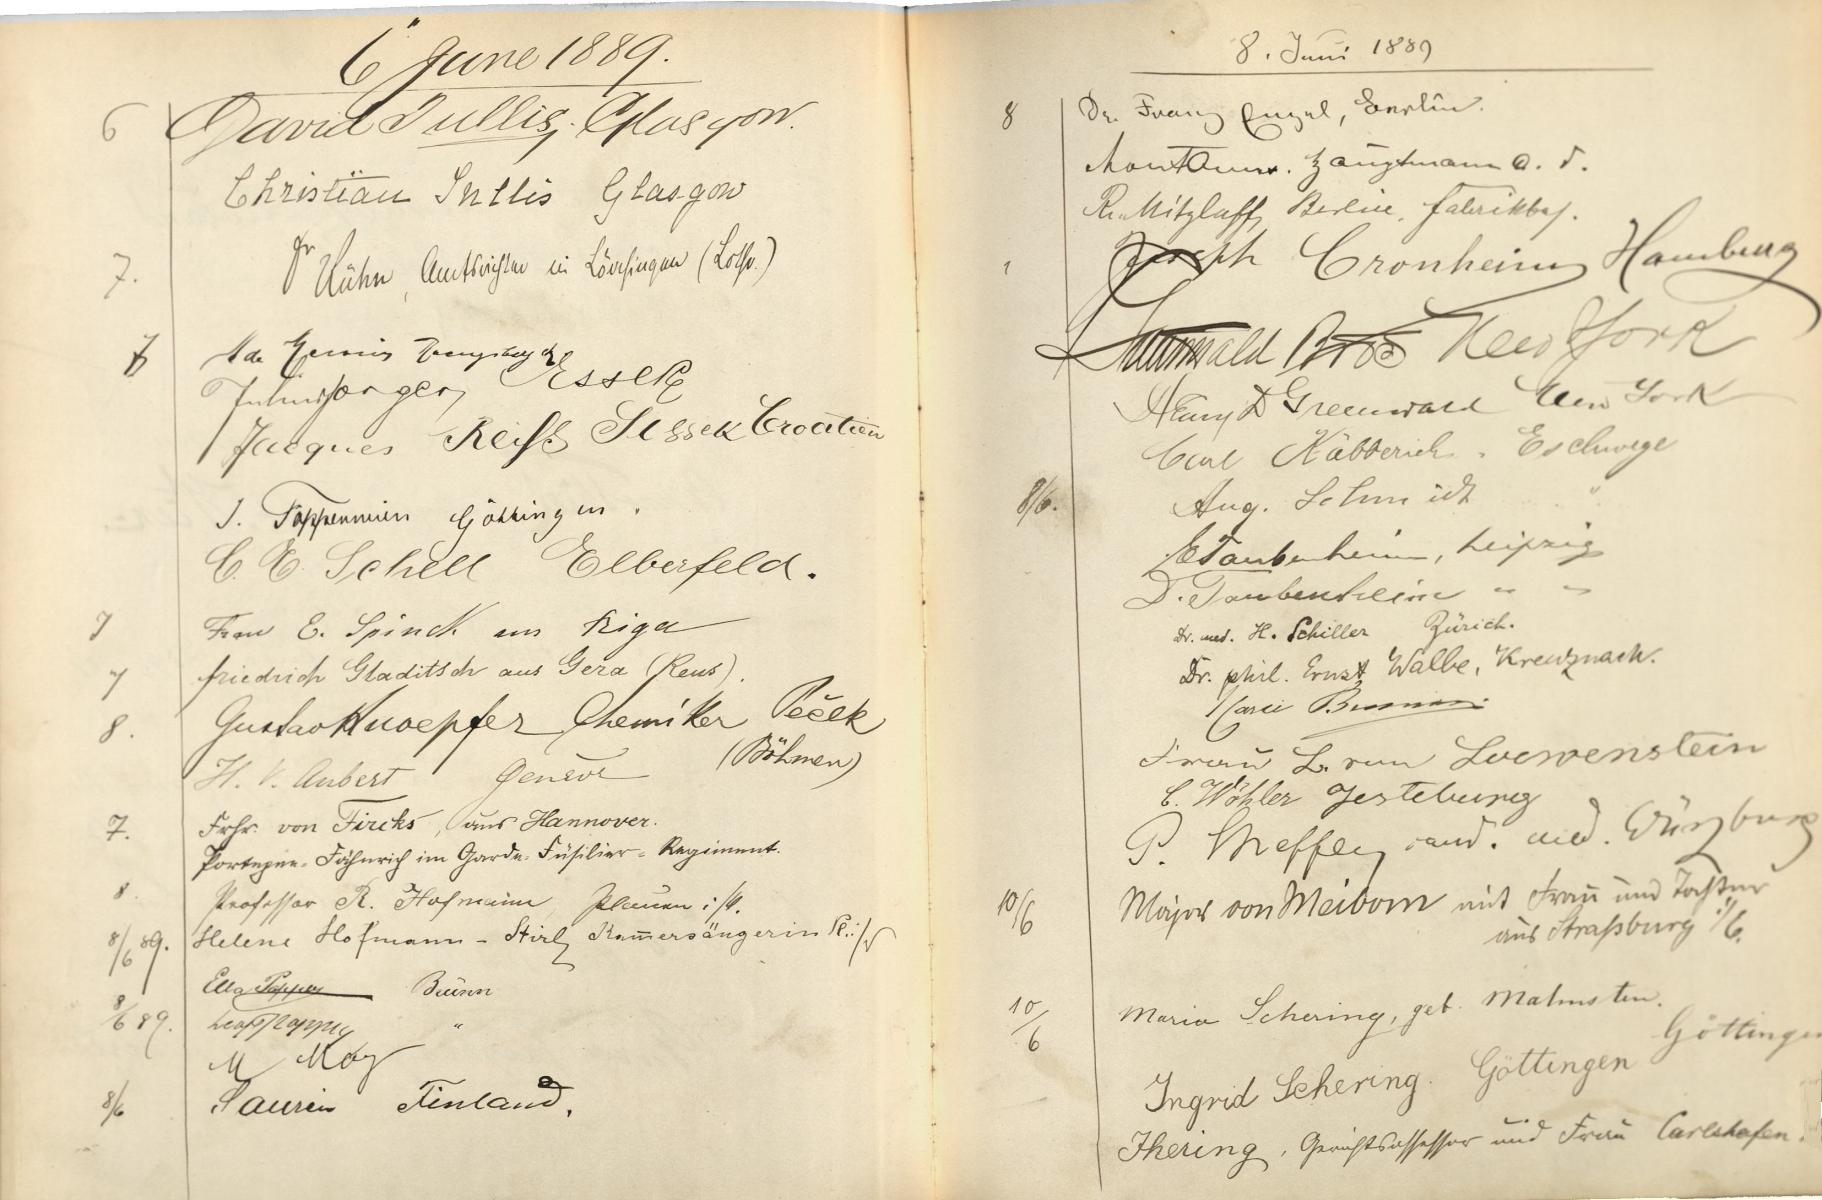 6 June 1889.
6 David Tullis, Glasgow.
Christian Tullis Glasgow
7. Dr Kühn, Amtsrichter in Lörchingen (Lothr.)
7
Essek
Jacques Reiss Essek Croatien
J. Göttingen.
C. E. Schell Elberfeld.
7 Frau E. Spinck aus Riga
7 Friedrich Gladitsch aus Gera (Reus).
8. Gustav Knoepfer Chemiker Peček
(Böhmen)
H. V. Aubert Genève
7. Frhr. von Fircks, aus Hannover.
Portepee-Fähnrich im Garde-Füsilier-Regiment.
8. Professor R. Hofmann, Plauen i/V.
8/6 89. Helene Hofmann-Stirl, Kamersängerin Pl. i/V
8/6 89. Ella Popper Brünn
Popper "
M May
8/6 Laurin Finland.
8. Juni 1889
8 Dr. Franz Engel, Berlin.
Hauptmann a. D.
R. Mitzlaff, Berlin, Fabrikbes.
Joseph Cronheim, Hamburg
Bros New York
Henry D Greenwald New York
Carl Käbberich. Eschwege
8/6. Aug. Schmidt "
E Taubenheim, Leipzig
D. Taubenheim " "
Dr. med. H. Schiller Zürich.
Dr. phil. Ernst Walbe, Kreuznach.
Frau L. van Loewenstein
C. Wöhler Jesteburg
P. Steffen, cand. med. Würzburg
10/6 Major von Meibom mit Frau und Tochter
aus Straßburg i/E.
10/6 Maria Schering, geb. Malmsten.
Göttingen
Ingrid Schering. Göttingen
Ihering, Gerichtsassessor und Frau Carlshafen.